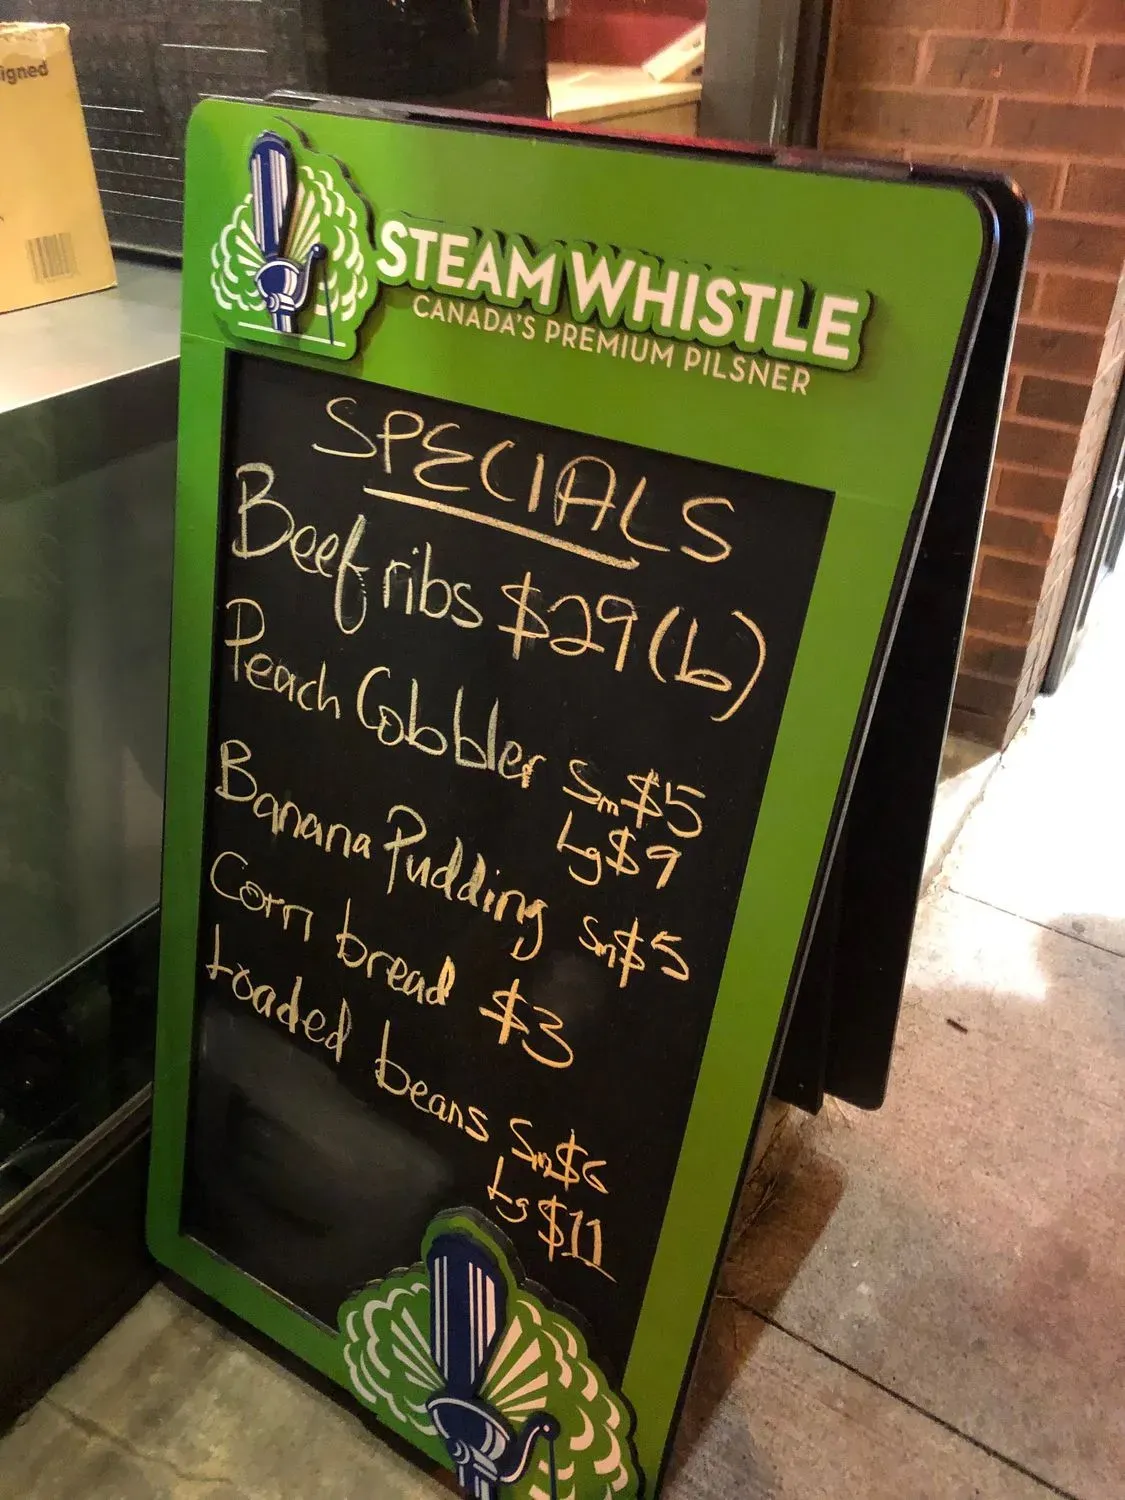 igned
STEAM WHISTLE
CANADA'S PREMIUM PILSNER
SPECIALS
Beef ribs $29 (lb)
Peach Cobbler Sm $5
Lg $9
Banana Pudding Sm $5
Corn bread $3
Loaded beans Sm $6
Lg $11